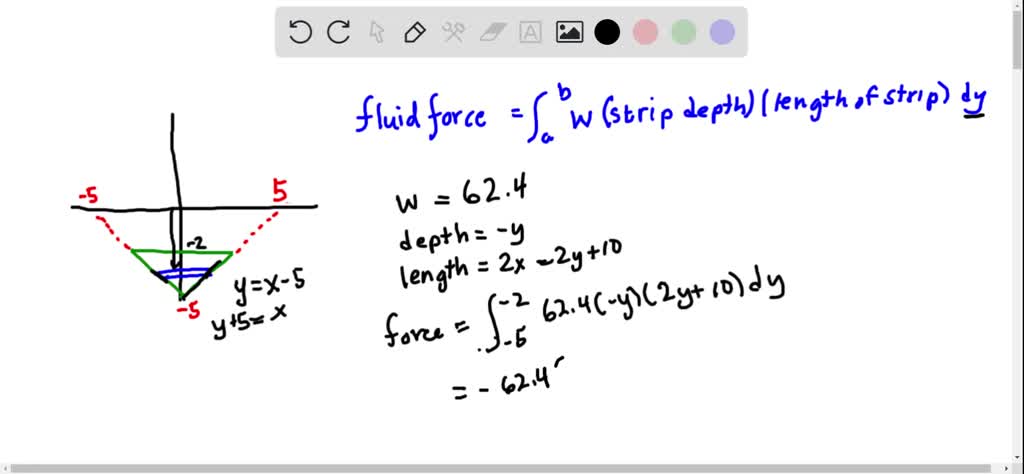 A
fluid force = ∫_a^b w (strip depth) (length of strip) dy
-5
5
w = 62.4
-2
depth = -y
length = 2x = 2y+10
y = x-5
-5
y+5 = x
force = ∫_{-5}^{-2} 62.4 (-y) (2y+10) dy
= - 62.4